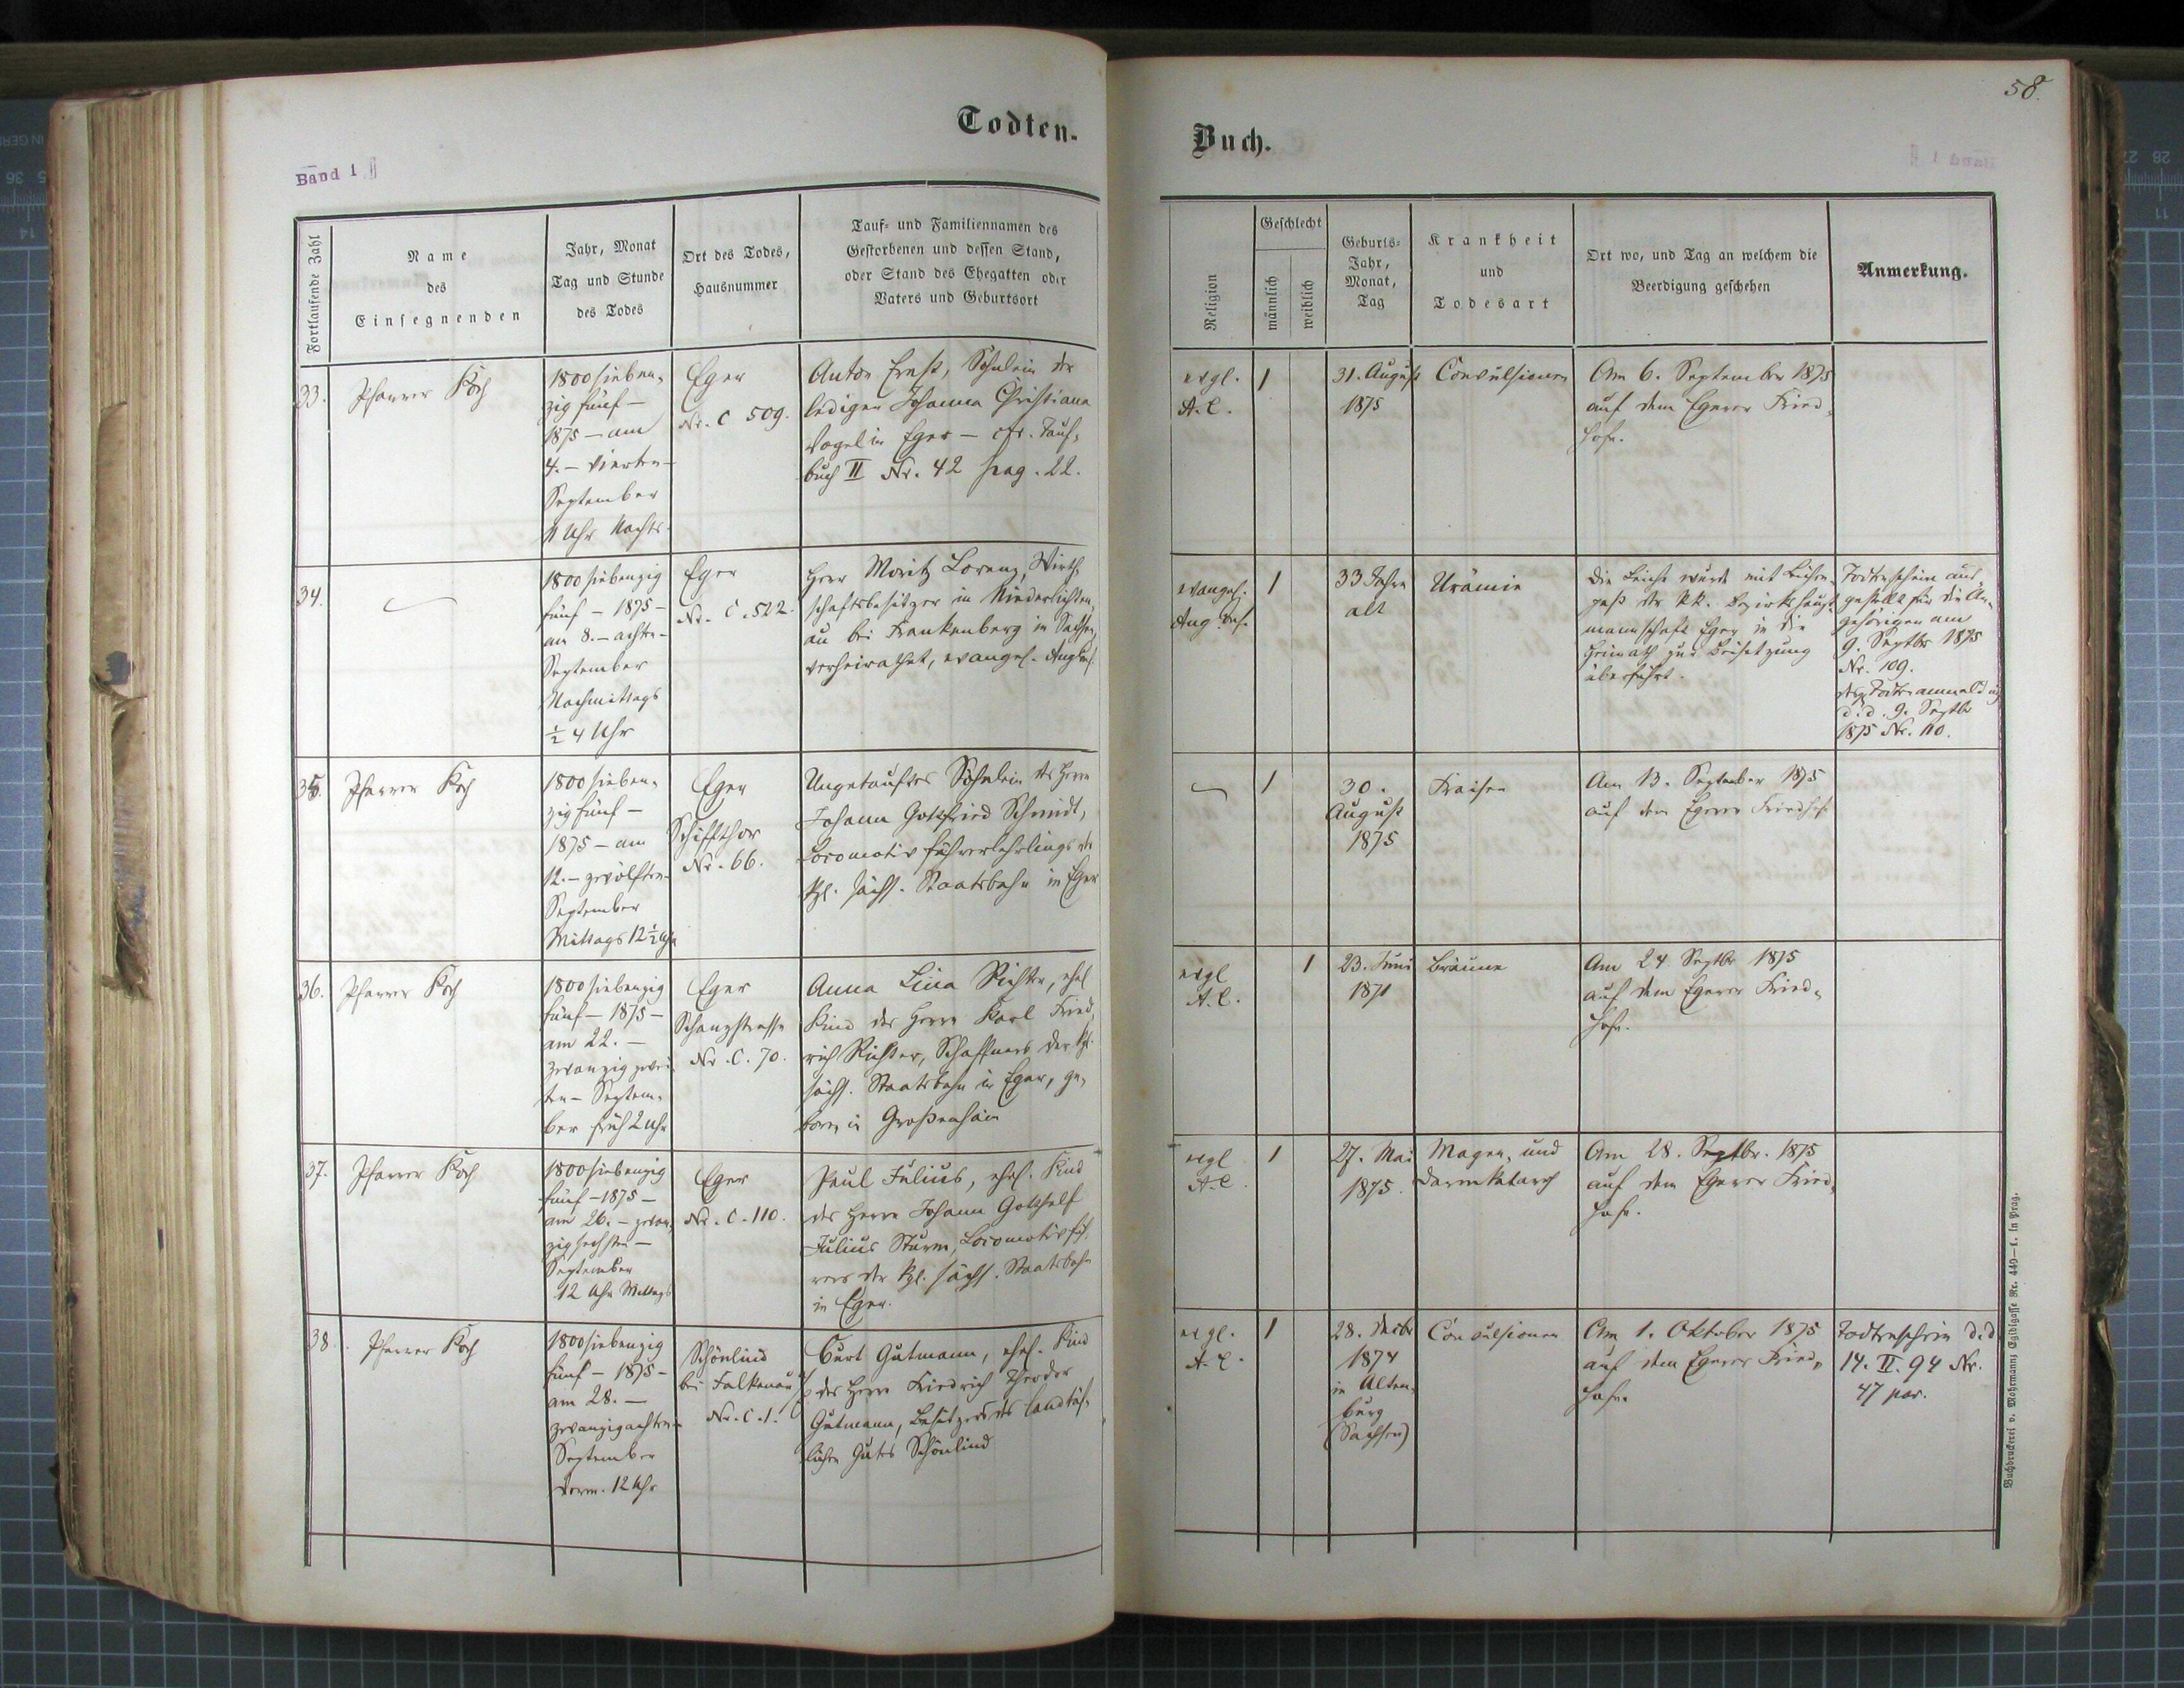 58.
Todten-
Buch.
Band 1
Fortlaufende Zahl
Name
des
Einsegnenden
Jahr, Monat
Tag und Stunde
des Todes
Ort des Todes,
Hausnummer
Tauf- und Familiennamen des
Gestorbenen und dessen Stand,
oder Stand des Ehegatten oder
Vaters und Geburtsort
Religion
Geschlecht
männlich
weiblich
Geburts-
Jahr,
Monat,
Tag
Krankheit
und
Todesart
Ort wo, und Tag an welchem die
Beerdigung geschehen
Anmerkung.
33.
Pfarrer Koch
1800 sieben-
zig fünf –
1875 – am
4. – vierten –
September
11 Uhr Nachts
Eger
Nr. C 509.
Anton Ernst, Söhnlein der
ledigen Johanna Christiana
Vogel in Eger – cfr. Tauf-
buch II Nr. 42 pag. 22.
evgl.
A. C.
1
31. August
1875
Convulsionen
Am 6. September 1875
auf dem Egerer Fried-
hofe.
34.
1800 siebenzig
fünf – 1875 –
am 8. – achten –
September
Nachmittags
½ 4 Uhr
Eger
Nr. C. 522.
Herr Moritz Lorenz, Wirth-
schaftsbesitzer in Niederlichten-
au bei Frankenberg in Sachsen,
verheirathet, evangel. Augsb.
evangel.
Aug. Bek.
1
33 Jahre
alt
Urämie
Die Leiche wurde mit Leichen-
paß der kk. Bezirkshaupt-
mannschaft Eger in die
Heimath zur Beisetzung
überführt.
Todtenschein aus-
gestellt für die An-
gehörigen am
9. Septbr 1875
Nr. 109.
Todtenanmeldung
d. d. 9. Septbr
1875 Nr. 110.
35.
Pfarrer Koch
1800 sieben-
zig fünf –
1875 – am
12. – zwölften –
September
Mittags 12½ Uhr
Eger
Schiffthor
Nr. 66.
Ungetauftes Söhnlein des Herrn
Johann Gottfried Schmidt,
Locomotivführerlehrlings der
kgl. sächs. Staatsbahn in Eger
1
30.
August
1875
Fraisen
Am 13. September 1875
auf dem Egerer Friedhofe
36.
Pfarrer Koch
1800 siebenzig
fünf – 1875 –
am 22. –
zwanzig zwei-
ten – Septem-
ber früh 2 Uhr
Eger
Schanzstrasse
Nr. C. 70.
Anna Lina Richter, ehel
Kind des Herrn Karl Fried-
rich Richter, Schaffners der kgl.
sächs. Staatsbahn in Eger, ge-
boren in Großenhain
evgl
A. C.
1
23. Juni
1871
Bräune
Am 24 Septbr 1875
auf dem Egerer Fried-
hofe.
37.
Pfarrer Koch
1800 siebenzig
fünf – 1875 –
am 26. – zwan-
zig sechsten –
September
12 Uhr Mittags
Eger
Nr. C. 110.
Paul Julius, ehel. Kind
des Herrn Johann Gotthelf
Julius Sturm, Locomotivfüh-
rers der kgl. sächs. Staatsbahn
in Eger.
evgl
A. C.
1
27. Mai
1875.
Magen- und
Darmkatarrh
Am 28. Septbr. 1875
auf dem Egerer Fried-
hofe.
38.
Pfarrer Koch
1800 siebenzig
fünf – 1875 –
am 28. –
zwanzigachten –
September
Vorm. 12 Uhr
Schönlind
bei Falkenau
Nr. C. 1.
Curt Gutmann, ehel. Kind
des Herrn Friedrich Theodor
Gutmann, Besitzers des landtäf-
lichen Gutes Schönlind
evgl.
A. C.
1
28. Decbr
1874
in Alten-
burg
(Sachsen)
Convulsionen
Am 1. Oktober 1875
auf dem Egerer Fried-
hofe.
Todtenschein d. d
14. II. 94 Nr.
47 par.
Buchdruckerei v. Mohrmann; Egidigasse Nr. 449–1. in Prag.